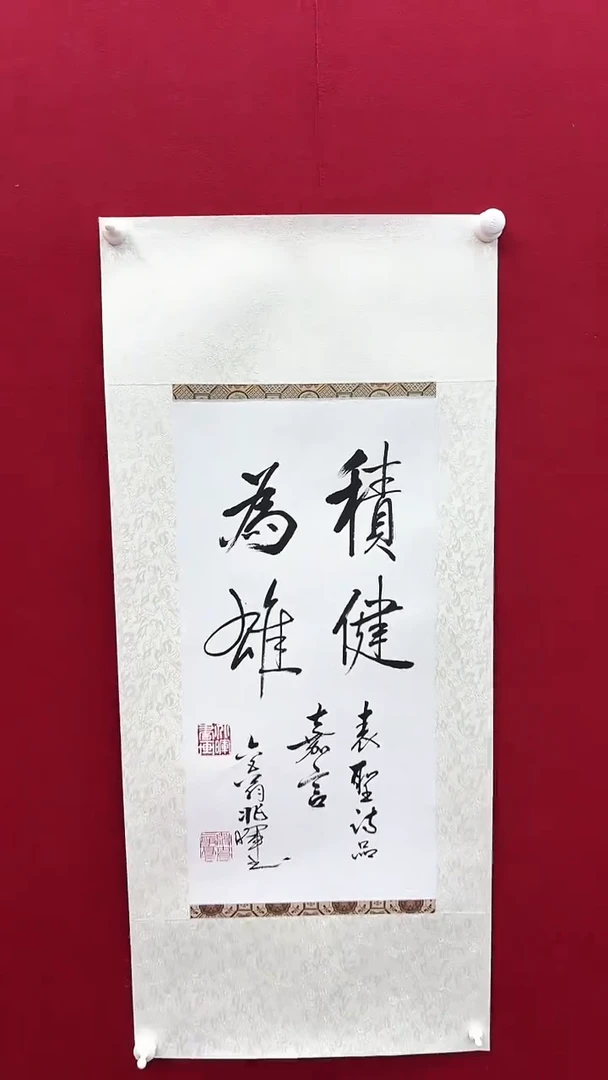 積健
為雄
表聖詩品
嘉言
兆暉書